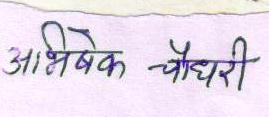 अभिषेक चौधरी